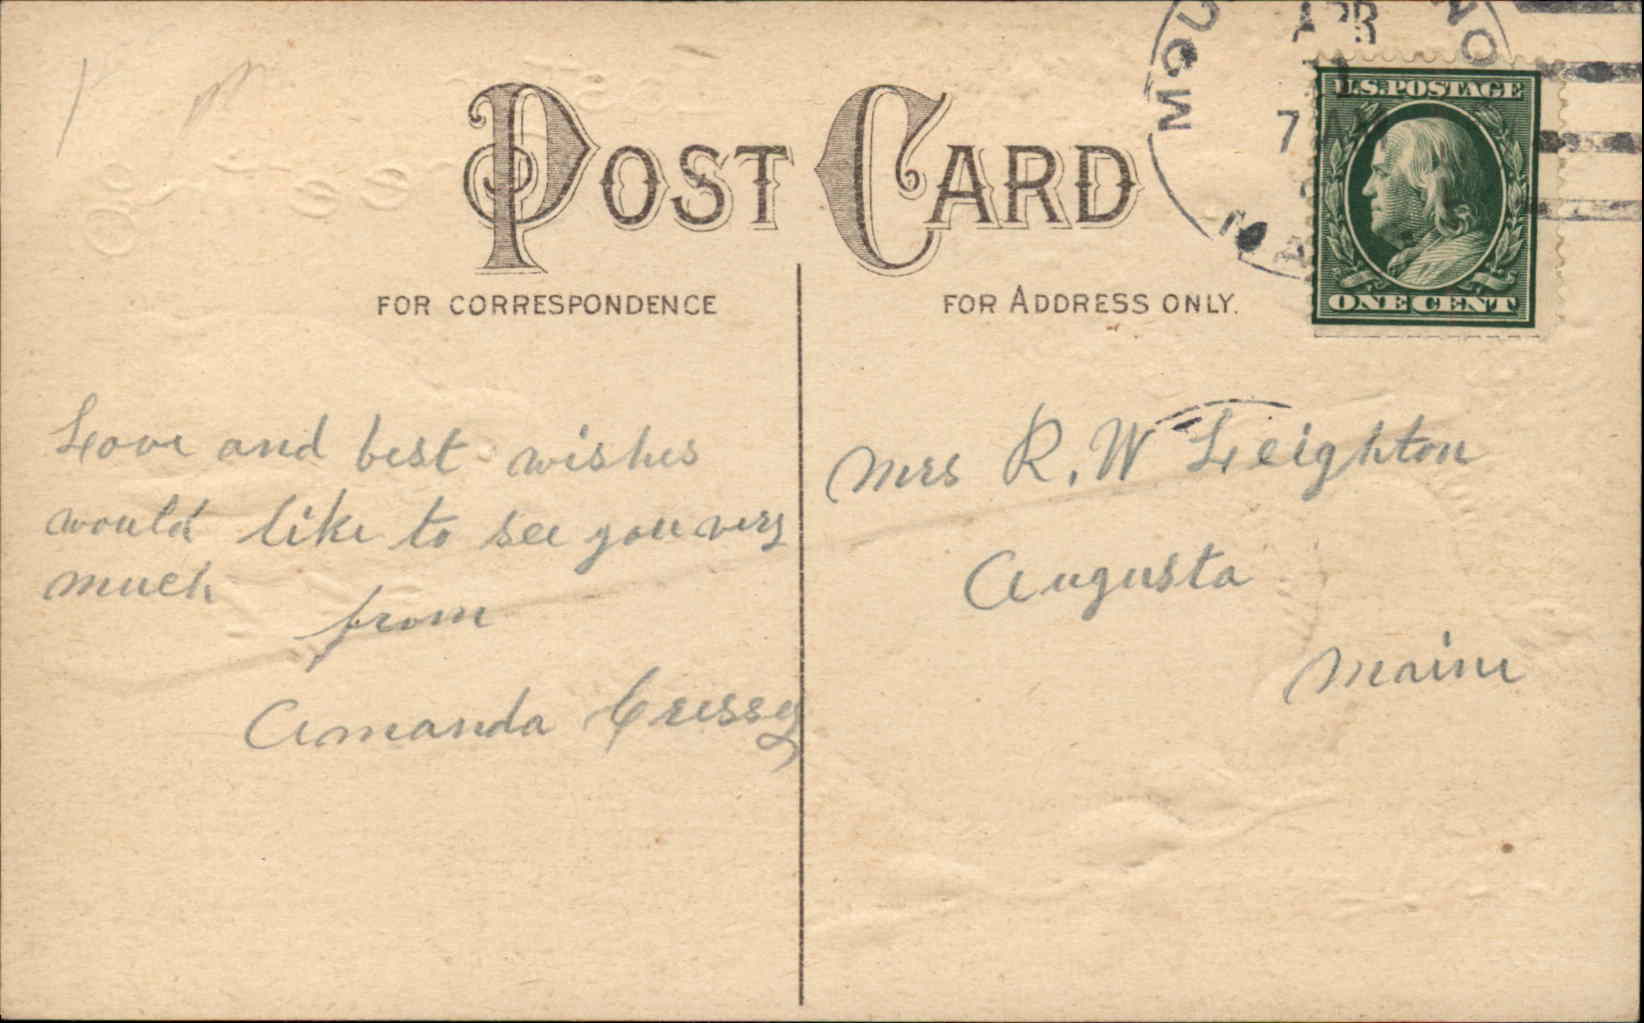 POST CARD
FOR CORRESPONDENCE
FOR ADDRESS ONLY.
APR
7
U.S. POSTAGE
ONE CENT
Love and best wishes
would like to see you very
much
from
Amanda Cressy
Mrs R. W Leighton
Augusta
Maine